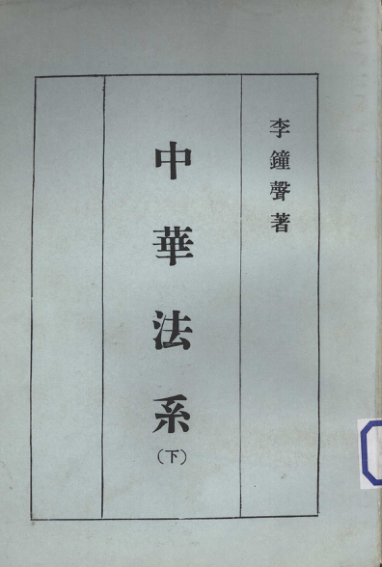 李鐘聲著
中華法系
(下)